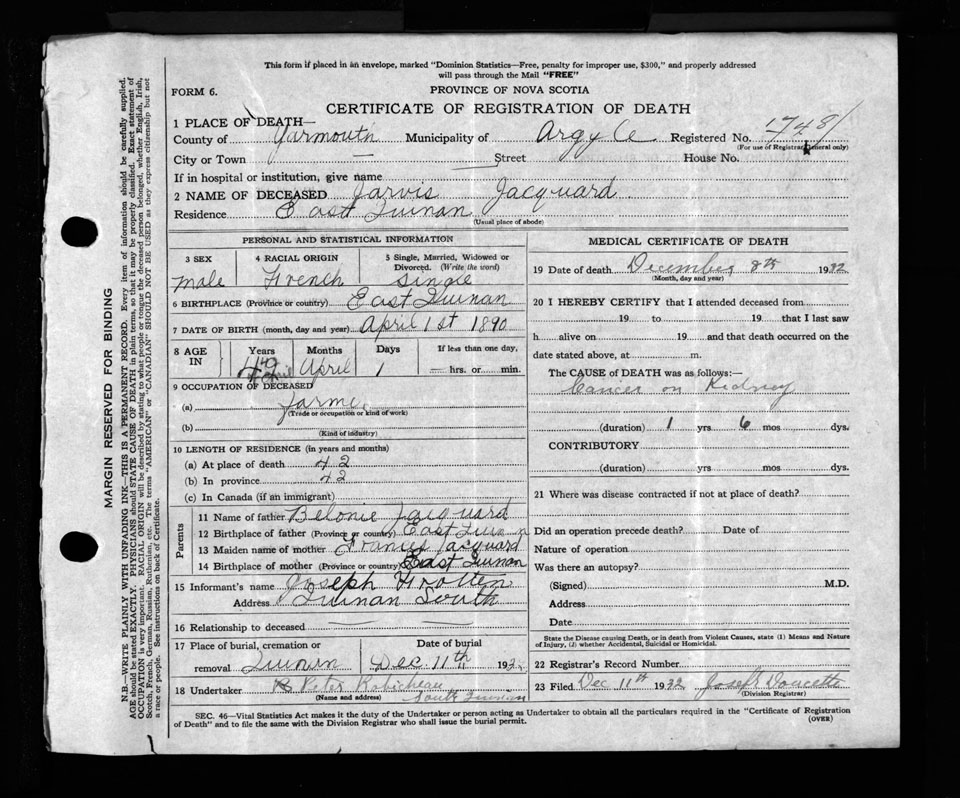 This form if placed in an envelope, marked "Dominion Statistics—Free, penalty for improper use, $300," and properly addressed
will pass through the Mail "FREE"
FORM 6.
PROVINCE OF NOVA SCOTIA
CERTIFICATE OF REGISTRATION OF DEATH
1 PLACE OF DEATH—
County of Yarmouth Municipality of Argyle Registered No. 1748
(For use of Registrar General only)
City or Town — Street House No.
If in hospital or institution, give name
2 NAME OF DECEASED Jarvis Jacquard
Residence East Quinan
(Usual place of abode)
PERSONAL AND STATISTICAL INFORMATION
3 SEX 4 RACIAL ORIGIN 5 Single, Married, Widowed or
Divorced. (Write the word)
male French single
6 BIRTHPLACE (Province or country) East Quinan
7 DATE OF BIRTH (month, day and year) April 1st 1890
8 AGE IN Years Months Days If less than one day,
April 1 — hrs. or min.
9 OCCUPATION OF DECEASED
(a) Farmer
(Trade or occupation or kind of work)
(b)
(Kind of industry)
10 LENGTH OF RESIDENCE (in years and months)
(a) At place of death 42
(b) In province 42
(c) In Canada (if an immigrant)
Parents
11 Name of father Belonie Jacquard
12 Birthplace of father (Province or country) East Quinan
13 Maiden name of mother Jacquard
14 Birthplace of mother (Province or country) East Quinan
15 Informant's name Joseph Frotten
Address Quinan South
16 Relationship to deceased —
17 Place of burial, cremation or Date of burial
removal Quinan Dec 11th 1932
18 Undertaker Peter Robicheau South Quinan
(Name and address)
MEDICAL CERTIFICATE OF DEATH
19 Date of death December 8th 1932
(Month, day and year)
20 I HEREBY CERTIFY that I attended deceased from
19 to 19 that I last saw
h alive on 19 and that death occurred on the
date stated above, at m.
The CAUSE OF DEATH was as follows:—
Cancer on Kidney
(duration) 1 yrs 6 mos dys.
CONTRIBUTORY
(duration) yrs. mos. dys.
21 Where was disease contracted if not at place of death?
Did an operation precede death? Date of
Nature of operation
Was there an autopsy?
(Signed) M.D.
Address
Date
State the Disease causing Death, or in death from Violent Causes, state (1) Means and Nature
of Injury, (2) whether Accidental, Suicidal or Homicidal.
22 Registrar's Record Number
23 Filed Dec 11th 1932 Joseph Doucette
(Division Registrar)
SEC. 46—Vital Statistics Act makes it the duty of the Undertaker or person acting as Undertaker to obtain all the particulars required in the "Certificate of Registration
of Death" and to file the same with the Division Registrar who shall issue the burial permit.
(OVER)
MARGIN RESERVED FOR BINDING
N.B.—WRITE PLAINLY WITH UNFADING INK—THIS IS A PERMANENT RECORD. Every item of information should be carefully supplied.
AGE should be stated EXACTLY. PHYSICIANS should STATE CAUSE OF DEATH in plain terms, so that it may be properly classified. Exact statement of
OCCUPATION is very important. RACIAL ORIGIN will be described by stating to what people or tongue the deceased person belonged, whether English, Irish,
Scotch, French, German, Russian, Ruthenian, etc. The terms "AMERICAN" or "CANADIAN" SHOULD NOT BE USED as they express citizenship but not
a race or people. See instructions on back of Certificate.